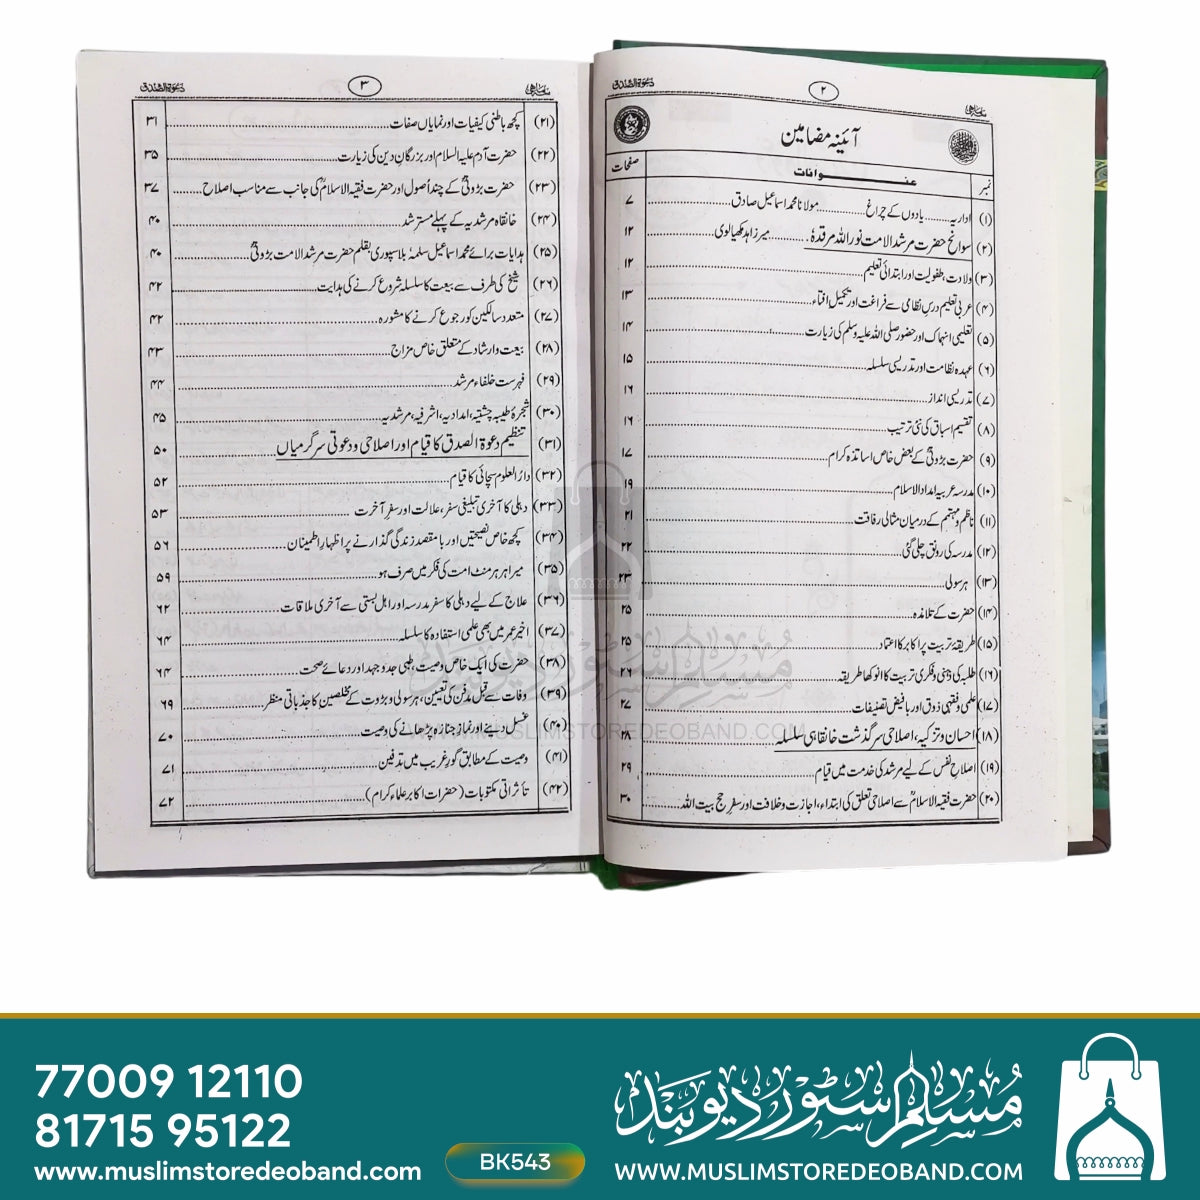 ماہی
۲
دعوۃ الصدق
آئینہ مضامین
نمبر عنوانات صفحات
(۱) اداریہ........ یادوں کے چراغ ............ مولانا محمد اسماعیل صادق ۷
(۲) سوانح حضرت مرشد الامت نور اللہ مرقدہٗ ......... میر زاہد مکھیالوی ۱۲
(۳) ولادت، طفولیت اور ابتدائی تعلیم ۱۲
(۴) عربی تعلیم درس نظامی سے فراغت اور تکمیل افتاء ۱۳
(۵) تعلیمی انہماک اور حضور صلی اللہ علیہ وسلم کی زیارت ۱۴
(۶) عہدہ نظامت اور تدریسی سلسلہ ۱۵
(۷) تدریسی انداز ۱۶
(۸) تقسیم اسباق کی نئی ترتیب ۱۶
(۹) حضرت بڑوتیؒ کے بعض خاص اساتذہ کرام ۱۷
(۱۰) مدرسہ عربیہ امداد الاسلام ۱۹
(۱۱) ناظم و مہتمم کے درمیان مثالی رفاقت ۲۱
(۱۲) مدرسہ کی رونق چلی گئی ۲۲
(۱۳) ہرسولی ۲۳
(۱۴) حضرت کے تلامذہ ۲۵
(۱۵) طریقۂ تربیت پر اکابر کا اعتماد ۲۵
(۱۶) طلبہ کی ذہنی و فکری تربیت کا انوکھا طریقہ ۲۶
(۱۷) علمی و فقہی ذوق اور با فیض تصنیفات ۲۷
(۱۸) احسان و تزکیہ، اصلاحی سرگذشت خانقاہی سلسلہ ۲۸
(۱۹) اصلاحِ نفس کے لیے مرشد کی خدمت میں قیام ۲۹
(۲۰) حضرت فقیہ الاسلامؒ سے اصلاحی تعلق کی ابتداء، اجازت و خلافت اور سفر حج بیت اللہ ۳۰
ماہی
۳
دعوۃ الصدق
(۲۱) کچھ باطنی کیفیات اور نمایاں صفات ۳۱
(۲۲) حضرت آدم علیہ السلام اور بزرگانِ دین کی زیارت ۳۵
(۲۳) حضرت بڑوتیؒ کے چند اُصول اور حضرت فقیہ الاسلامؒ کی جانب سے مناسب اصلاح ۳۷
(۲۴) خانقاہ مرشدیہ کے پہلے مسترشد ۴۰
(۲۵) ہدایات برائے محمد اسماعیل سلمہٗ بلاسپوری بقلم حضرت مرشد الامت بڑوتیؒ ۴۰
(۲۶) شیخ کی طرف سے بیعت کا سلسلہ شروع کرنے کی ہدایت ۴۲
(۲۷) متعدد سالکین کو رجوع کرنے کا مشورہ ۴۲
(۲۸) بیعت و ارشاد کے متعلق خاص مزاج ۴۳
(۲۹) فہرست خلفاء مرشد ۴۴
(۳۰) شجرۂ طیبہ چشتیہ، امدادیہ، اشرفیہ، مرشدیہ ۴۵
(۳۱) تنظیم دعوۃ الصدق کا قیام اور اصلاحی و دعوتی سرگرمیاں ۵۰
(۳۲) دارُ العلوم سچائی کا قیام ۵۲
(۳۳) دہلی کا آخری تبلیغی سفر، علالت اور سفرِ آخرت ۵۳
(۳۴) کچھ خاص نصیحتیں اور با مقصد زندگی گذارنے پر اظہارِ اطمینان ۵۶
(۳۵) میرا ہر ہر منٹ امت کی فکر میں صرف ہو ۵۹
(۳۶) علاج کے لیے دہلی کا سفر مدرسہ اور اہل بستی سے آخری ملاقات ۶۲
(۳۷) اخیر عمر میں بھی علمی استفادہ کا سلسلہ ۶۴
(۳۸) حضرت کی ایک خاص وصیت، طبی جد و جہد اور دعائے صحت ۶۴
(۳۹) وفات سے قبل مدفن کی تعیین، ہرسولی و بڑوت کے مخلصین کا جذباتی منظر ۶۹
(۴۰) غسل دینے اور نمازِ جنازہ پڑھانے کی وصیت ۷۰
(۴۱) وصیت کے مطابق گورِ غریب میں تدفین ۷۱
(۴۲) تأثراتی مکتوبات (حضرات اکابر علماء کرام) ۷۲
مسلم سٹور دیوبند
WWW.MUSLIMSTOREDEOBAND.COM
77009 12110
81715 95122
www.muslimstoredeoband.com
BK543
مسلم سٹور دیوبند
WWW.MUSLIMSTOREDEOBAND.COM